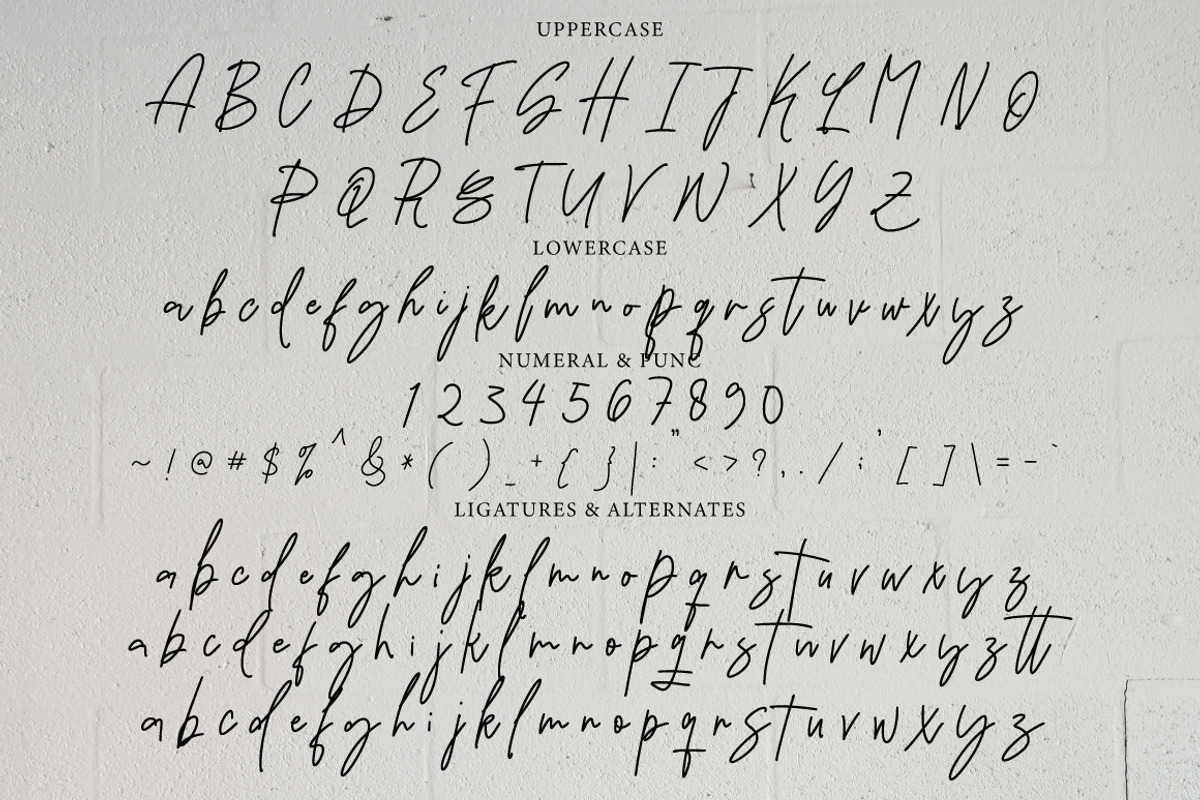 UPPERCASE
A B C D E F G H I J K L M N O
P Q R S T U V W X Y Z
LOWERCASE
a b c d e f g h i j k l m n o p q r s t u v w x y z
NUMERAL & PUNC
1 2 3 4 5 6 7 8 9 0
~ ! @ # $ % ^ & * ( ) _ + { } | : " < > ? , . / ; ' [ ] \ = - `
LIGATURES & ALTERNATES
a b c d e f g h i j k l m n o p q r s t u v w x y z
a b c d e f g h i j k l m n o p q r s t u v w x y z tt
a b c d e f g h i j k l m n o p q r s t u v w x y z